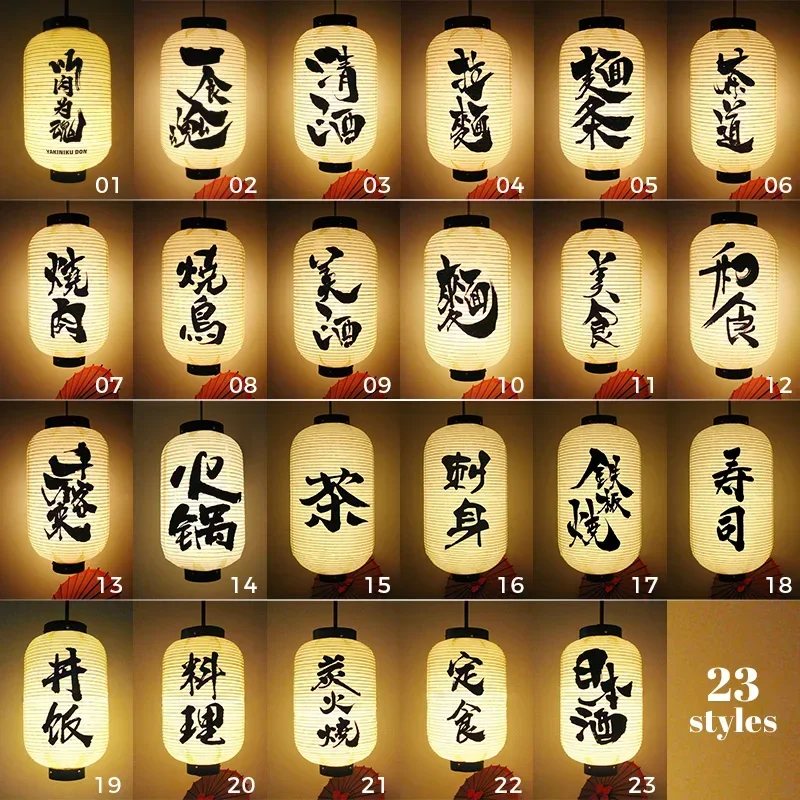 以肉为魂
YAKINIKU DON
01
一食入魂
02
清酒
03
拉麵
04
麵条
05
茶道
06
燒肉
07
焼鳥
08
美酒
09
麵
10
美食
11
和食
12
千客万来
13
火锅
14
茶
15
刺身
16
鉄板焼
17
寿司
18
丼饭
19
料理
20
炭火燒
21
定食
22
日本酒
23
23
styles